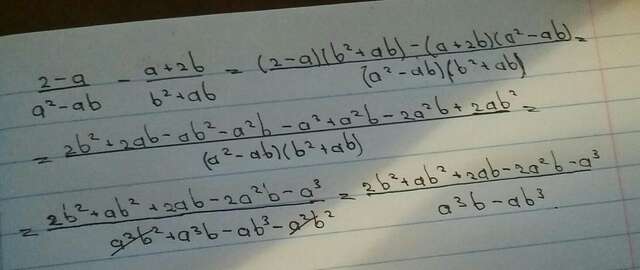 (2-a)/(a²-ab) - (a+2b)/(b²+ab) = ((2-a)(b²+ab)-(a+2b)(a²-ab))/((a²-ab)(b²+ab)) =
= (2b²+2ab-ab²-a²b-a³+a²b-2a²b+2ab²)/((a²-ab)(b²+ab)) =
= (2b²+ab²+2ab-2a²b-a³)/(a²b²+a³b-ab³-a²b²) = (2b²+ab²+2ab-2a²b-a³)/(a³b-ab³).